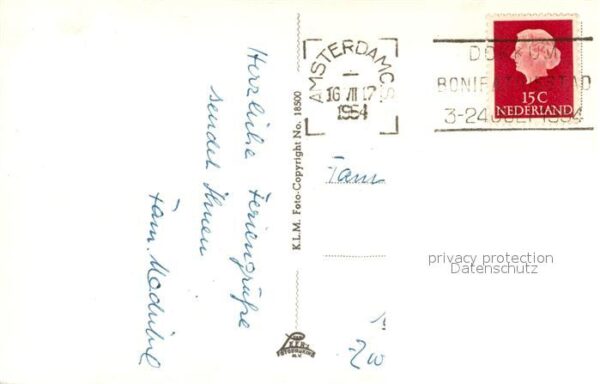 Herzliche Feriengrüße
sendet Ihnen
Fam.
K.L.M. Foto-Copyright No. 18500
AMSTERDAM C.S
16 VII 17
1954
DOKKUM
BONIFATIUSSTAD
3-24 JULI 1954
15 C
NEDERLAND
Fam
privacy protection
Datenschutz